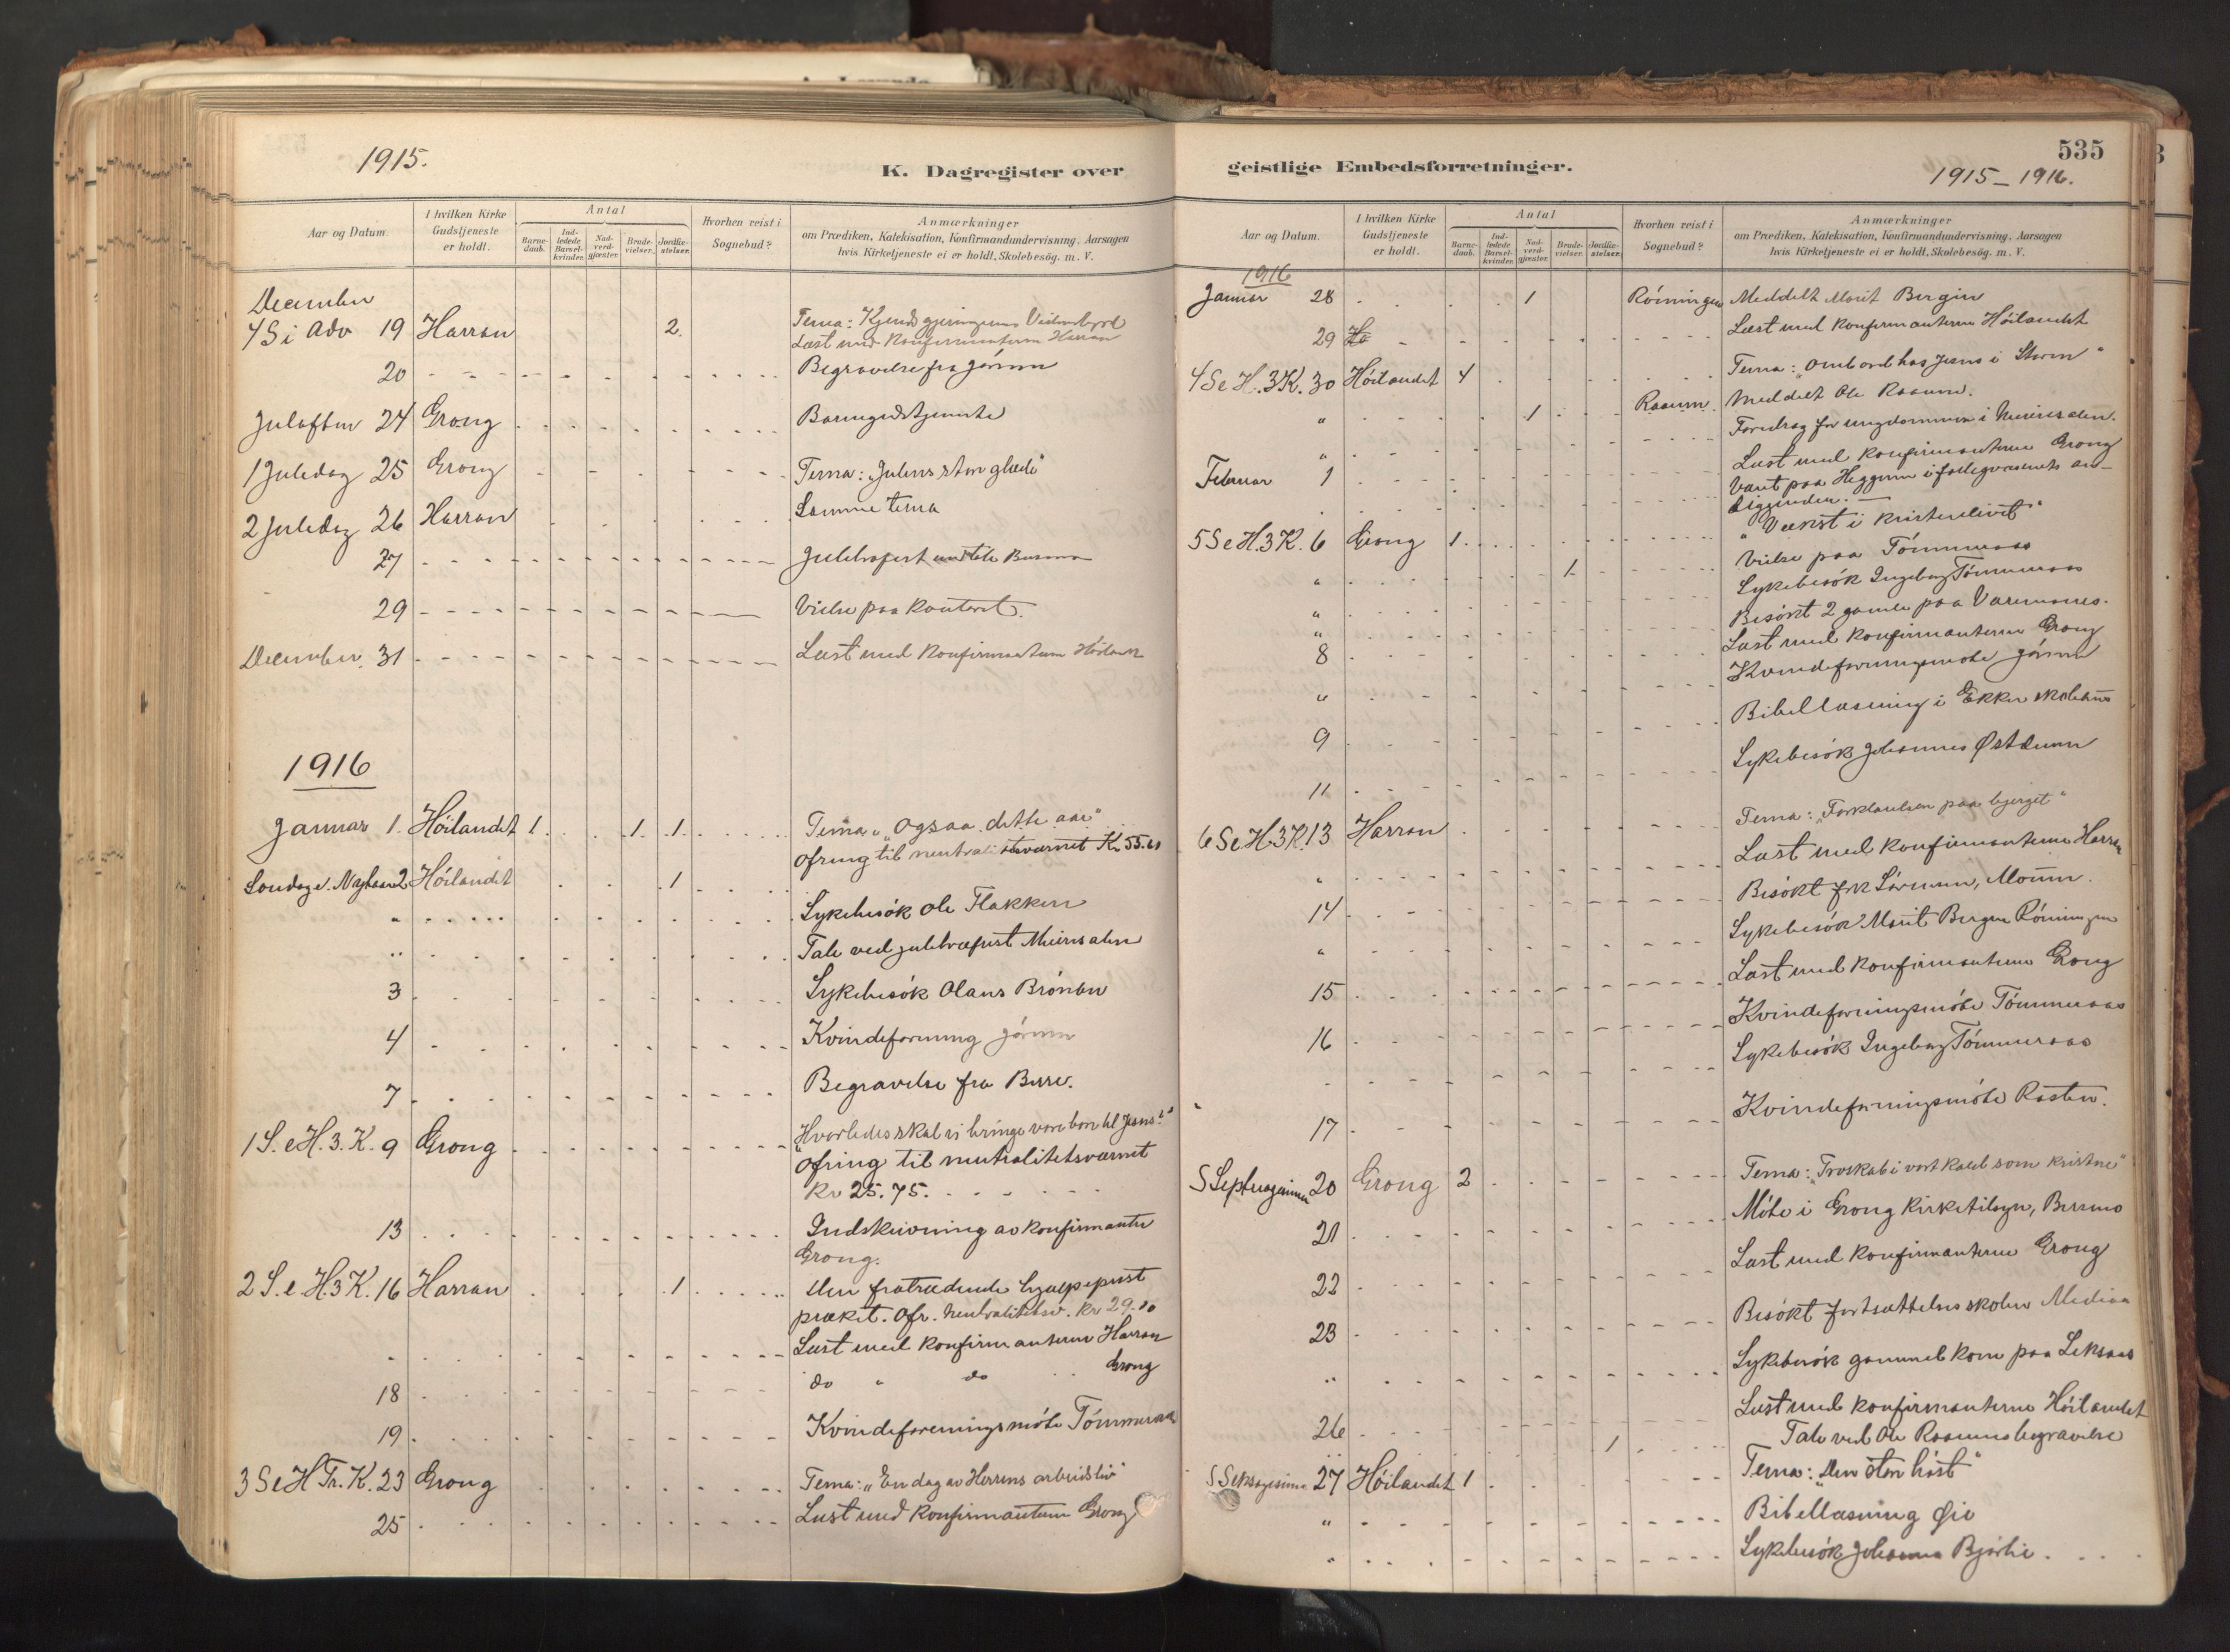 1915.
K. Dagregister over
Aar og Datum.
I hvilken Kirke
Gudstjeneste
er holdt.
Antal
Barne-
daab.
Ind-
ledede
Barsel-
kvinder.
Nad-
verd-
gjæster.
Brude-
vielser.
Jordfæ-
stelser.
Hvorhen reist i
Sognebud?
Anmærkninger
om Prædiken, Katekisation, Konfirmandundervisning. Aarsagen
hvis Kirketjeneste ei er holdt, Skolebesøg. m. V.
December
4 S i Adv 19 Harran 2. Tema: Kjendsgjerningernes Vidnesbyrd
Læst med Konfirmanterne Harran
20 Begravelse fra Jörum
Juleaften 24 Grong Barnegudstjeneste
1 Juledag 25 Grong Tema: "Julens store glæde"
2 Juledag 26 Harran Samme tema
27 Juletræfest
29 Vielse paa Kontoret.
December 31 Læst med Konfirmanterne Höiland
1916
Januar 1. Höilandet 1 1. 1. Tema: "Ogsaa dette aar"
Ofring til neutralitetsværnet Kr 55.60
Søndag e. Nytaar 2 Höilandet 1 Sykebesök Ole Flakken
" Tale ved juletræfest Meierisalen
3 Sykebesök Olaus Brönbo
4 Kvindeforening Jörum
7 Begravelse fra Berre.
1 S. e H. 3. K. 9 Grong "Hvorledes skal vi bringe vore barn til Jesus?"
Ofring til neutralitetsværnet
Kr 25.75.
13 Indskrivning av konfirmanter
Grong.
2 S. e. H3K. 16 Harran 1 Den fratrædende hjælpeprest
præket. Ofr. Neutralitetsv. Kr 29.10
Læst med konfirmanterne Harran
18 do " do Grong
19 Kvindeforeningsmöte Tömmeraas
3 S e H Tr. K. 23 Grong Tema: "En dag av Herrens arbeidsliv"
25 Læst med Konfirmanterne Grong
geistlige Embedsforretninger.
535
1915–1916.
Aar og Datum.
I hvilken Kirke
Gudstjeneste
er holdt.
Antal
Barne-
daab.
Ind-
ledede
Barsel-
kvinder.
Nad-
verd-
gjæster.
Brude-
vielser.
Jordfæ-
stelser.
Hvorhen reist i
Sognebud?
Anmærkninger
om Prædiken, Katekisation, Konfirmandundervisning. Aarsagen
hvis Kirketjeneste ei er holdt, Skolebesøg. m. V.
1916
Januar 28 1 Röiningen Meddelt Marit Bergin
29 Ha Læst med Konfirmanterne Höilandet
4 S e H. 3K. 30 Höilandet 4 Tema: "Ombord hos Jesus i Storm"
" 1 Rosum. Meddelt Ole Rosum.
" Foredrag for ungdommen i Meierisalen.
Februar 1 Læst med Konfirmanterne Grong
Været paa Heggum i fattigvæsenets an-
liggender.
5 S e H. 3K. 6 Grong 1. "Vækst i kristenlivet"
" 1 Vielse paa Tömmeraas
" Sykebesök Ingeborg Tömmeraas
" Besökt 2 gamle paa Varemoanes.
8 Læst med Konfirmanterne Grong
" Kvindeforeningsmöte Jörum
9 Bibellæsning i Ekker skolehus
11 Sykebesök Johannes Østduun
6 S e H. 3K. 13 Harran Tema: "Forklarelsen paa bjerget"
" Læst med konfirmanterne Harran
14 Besökt frk Sörmum, Moum.
" Sykebesök Marit Bergin Röiningen
15 Læst med konfirmanterne Grong
16 Kvindeforeningsmöte Tömmeraas
Sykebesök Ingeborg Tömmeraas
17 Kvindeforeningsmöte Rosten.
S Septuagesima 20 Grong 2 Tema: "Troskab i vort kald som kristne"
21 Möte i Grong Kirketilsyn, Bersmo
22 Læst med Konfirmanterne Grong
23 Besökt fortsættelsesskolen Mediaa
" Sykebesök gammel kone paa Leksaas
26 Læst med konfirmanterne Höilandet
" 1 Tale ved Ole Rosums begravelse
S Seksagesima 27 Höilandet 1 Tema: "Den store höst"
" Bibellæsning Øie
" Sykebesök Johanna Bjørlie.